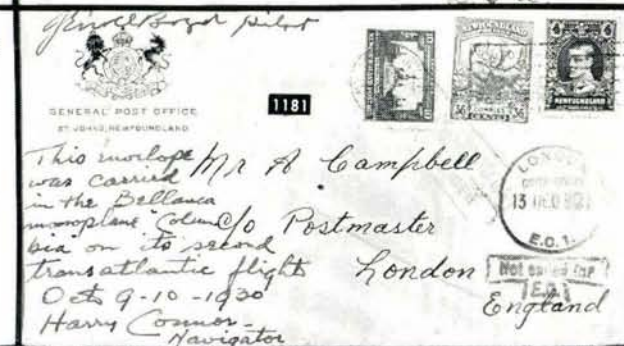 J Errol Boyd Pilot
GENERAL POST OFFICE
ST. JOHNS, NEWFOUNDLAND
1181
NEWFOUNDLAND
This envelope
was carried
in the Bellanca
monoplane "Colum
bia" on its second
transatlantic flight
Oct 9-10-1930
Harry Connor
Navigator
Mr A Campbell
c/o Postmaster
London
England
LONDON
13 OC
E.C.1.
Not
E.C.1